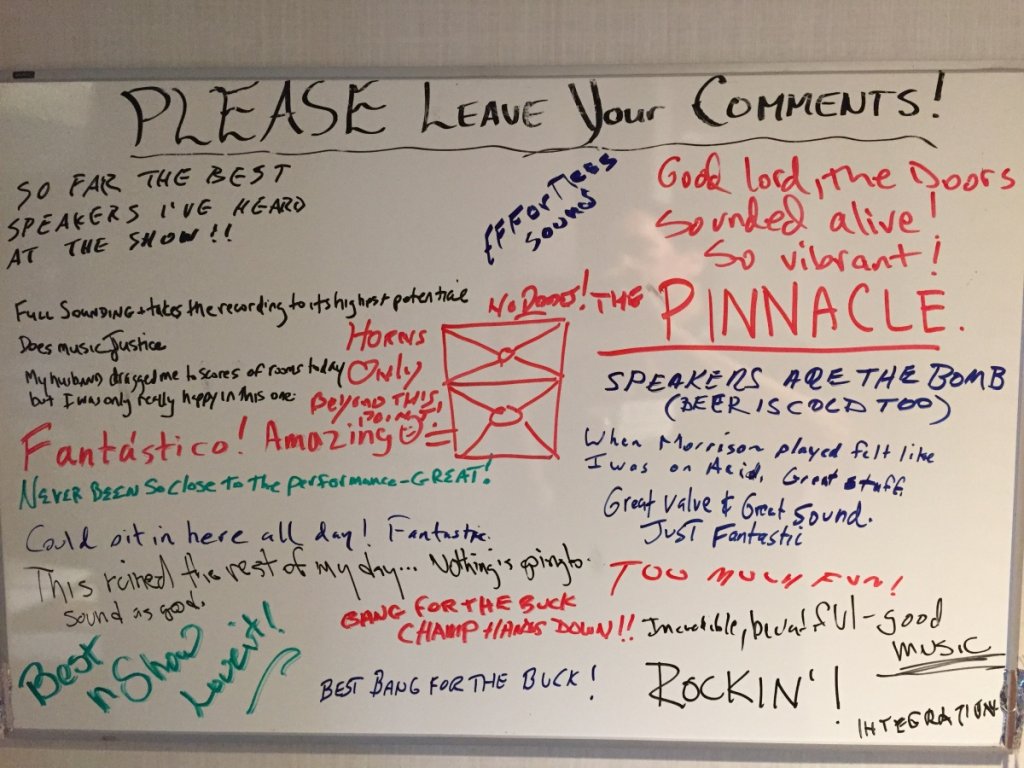 PLEASE LEAVE Your COMMENTS!
SO FAR THE BEST
SPEAKERS I'VE HEARD
AT THE SHOW!!
EFFORTless
sound
Good lord, the Doors
sounded alive!
So vibrant!
FULL SOUNDING + takes the recording to its highest potential
Does music Justice
My husband dragged me to scores of rooms today
but I was only really happy in this one.
No Doubt! THE
PINNACLE.
HORNS
ONLY
BEYOND THIS
POINT!
SPEAKERS ARE THE BOMB
(BEER IS COLD TOO)
Fantástico! Amazing
When Morrison played felt like
I was on Acid, Great stuff.
NEVER BEEN SO CLOSE TO THE PERFORMANCE-GREAT!
Great value & Great Sound.
JUST Fantastic
Could sit in here all day! Fantastic.
This ruined the rest of my day... Nothing is going to
sound as good.
TOO MUCH FUN!
BANG FOR THE BUCK
CHAMP HANDS DOWN!!
Incredible, beautiful-good
MUSIC
Best
n Show
Love it!
BEST BANG FOR THE BUCK!
ROCKIN'!
INTEGRATION